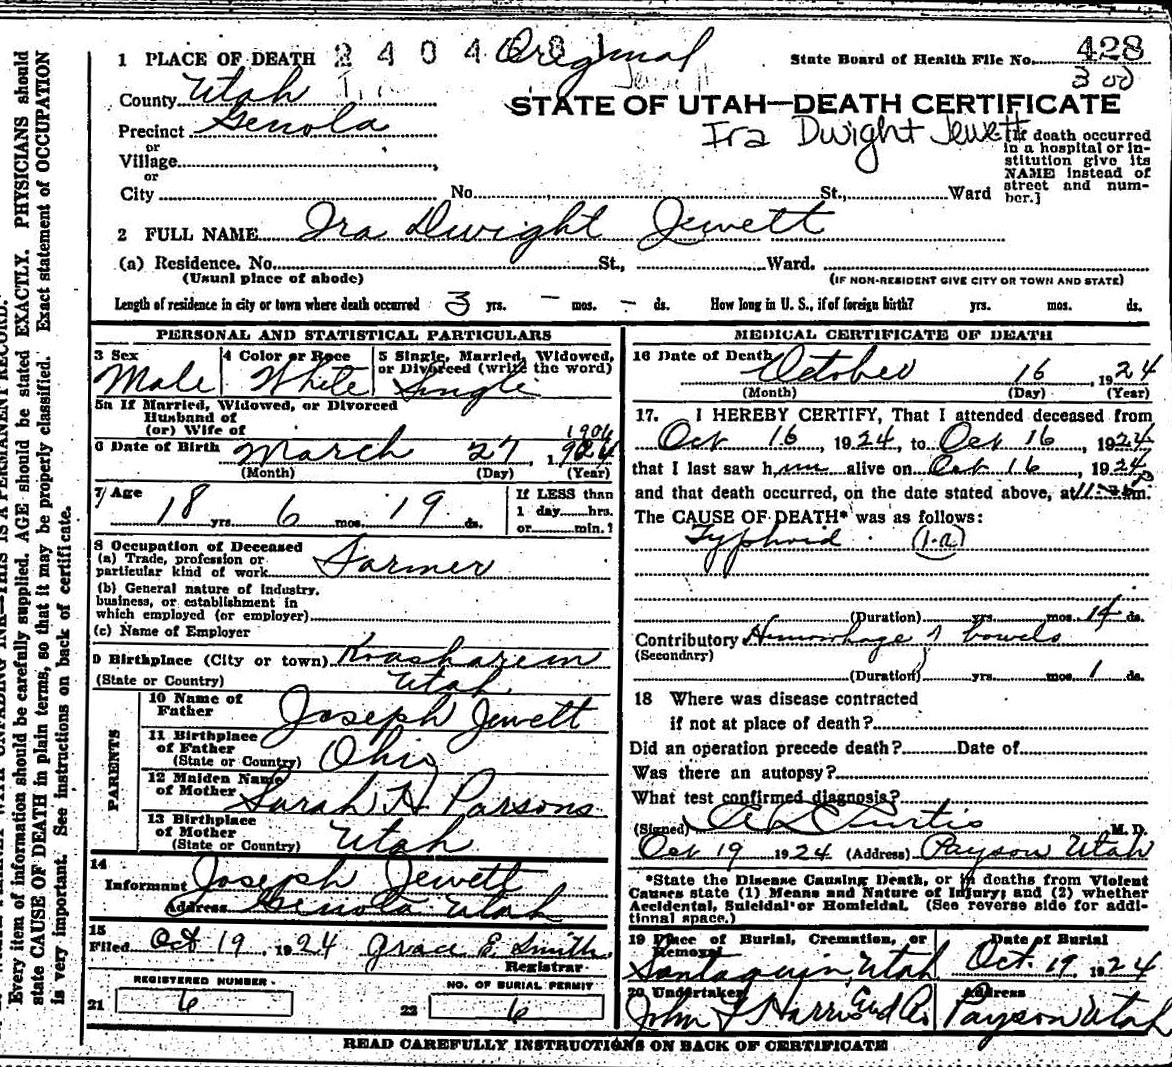 WITH UNFADING INK—THIS IS A PERMANENT RECORD.
Every item of information should be carefully supplied. AGE should be stated EXACTLY. PHYSICIANS should
state CAUSE OF DEATH in plain terms, so that it may be properly classified. Exact statement of OCCUPATION
is very important. See instructions on back of certificate.
1 PLACE OF DEATH 2404 Original
State Board of Health File No. 428
300
Jewett
County Utah
STATE OF UTAH—DEATH CERTIFICATE
Precinct Genola
Ira Dwight Jewett
or
Village
or
City No. St., Ward
[If death occurred
in a hospital or in-
stitution give its
NAME instead of
street and num-
ber.]
2 FULL NAME Ira Dwight Jewett
(a) Residence. No. St., Ward.
(Usual place of abode) (IF NON-RESIDENT GIVE CITY OR TOWN AND STATE)
Length of residence in city or town where death occurred 3 yrs. - mos. - ds. How long in U. S., if of foreign birth? yrs. mos. ds.
PERSONAL AND STATISTICAL PARTICULARS
3 Sex Male
4 Color or Race White
5 Single, Married, Widowed,
or Divorced (write the word)
Single
5a If Married, Widowed, or Divorced
Husband of
(or) Wife of
1906
6 Date of Birth March 27, 1924
(Month) (Day) (Year)
7 Age 18 yrs 6 mos. 19 ds.
If LESS than
1 day hrs.
or min.?
8 Occupation of Deceased
(a) Trade, profession or
particular kind of work Farmer
(b) General nature of industry,
business, or establishment in
which employed (or employer)
(c) Name of Employer
9 Birthplace (City or town) Koosharem
(State or Country) Utah
PARENTS
10 Name of
Father Joseph Jewett
11 Birthplace
of Father
(State or Country) Ohio
12 Maiden Name
of Mother Sarah H Parsons
13 Birthplace
of Mother
(State or Country) Utah
14
Informant Joseph Jewett
Address Genola Utah
15
Filed Oct 19, 1924 Grace E. Smith
Registrar
REGISTERED NUMBER
21 6
NO. OF BURIAL PERMIT
22 6
MEDICAL CERTIFICATE OF DEATH
16 Date of Death October 16, 1924
(Month) (Day) (Year)
17. I HEREBY CERTIFY, That I attended deceased from
Oct 16, 1924, to Oct 16, 1924
that I last saw him alive on Oct 16, 1924
and that death occurred, on the date stated above, at m.
The CAUSE OF DEATH* was as follows:
Typhoid (1-a)
(Duration) yrs. mos. 14 ds.
Contributory Hemorrhage of bowels
(Secondary)
(Duration) yrs. mos. 1 ds.
18 Where was disease contracted
if not at place of death?
Did an operation precede death? Date of
Was there an autopsy?
What test confirmed diagnosis?
(Signed) A L Curtis M. D.
Oct 19 1924 (Address) Payson Utah
*State the Disease Causing Death, or in deaths from Violent
Causes state (1) Means and Nature of Injury; and (2) whether
Accidental, Suicidal or Homicidal. (See reverse side for addi-
tional space.)
19 Place of Burial, Cremation, or
Removal
Santaquin, Utah
Date of Burial
Oct. 19, 1924
20 Undertaker
John Harris
Address
Payson Utah
READ CAREFULLY INSTRUCTIONS ON BACK OF CERTIFICATE